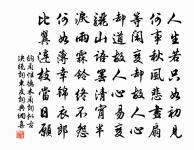 人生若只如初見
何事秋風悲畫扇
等閑變卻故人心
卻道故人心易變
驪山語罷清宵半
淚雨零鈴終不怨
何如薄倖錦衣郎
比翼連枝當日願
納蘭性德木蘭詞擬古
決絕詞柬友